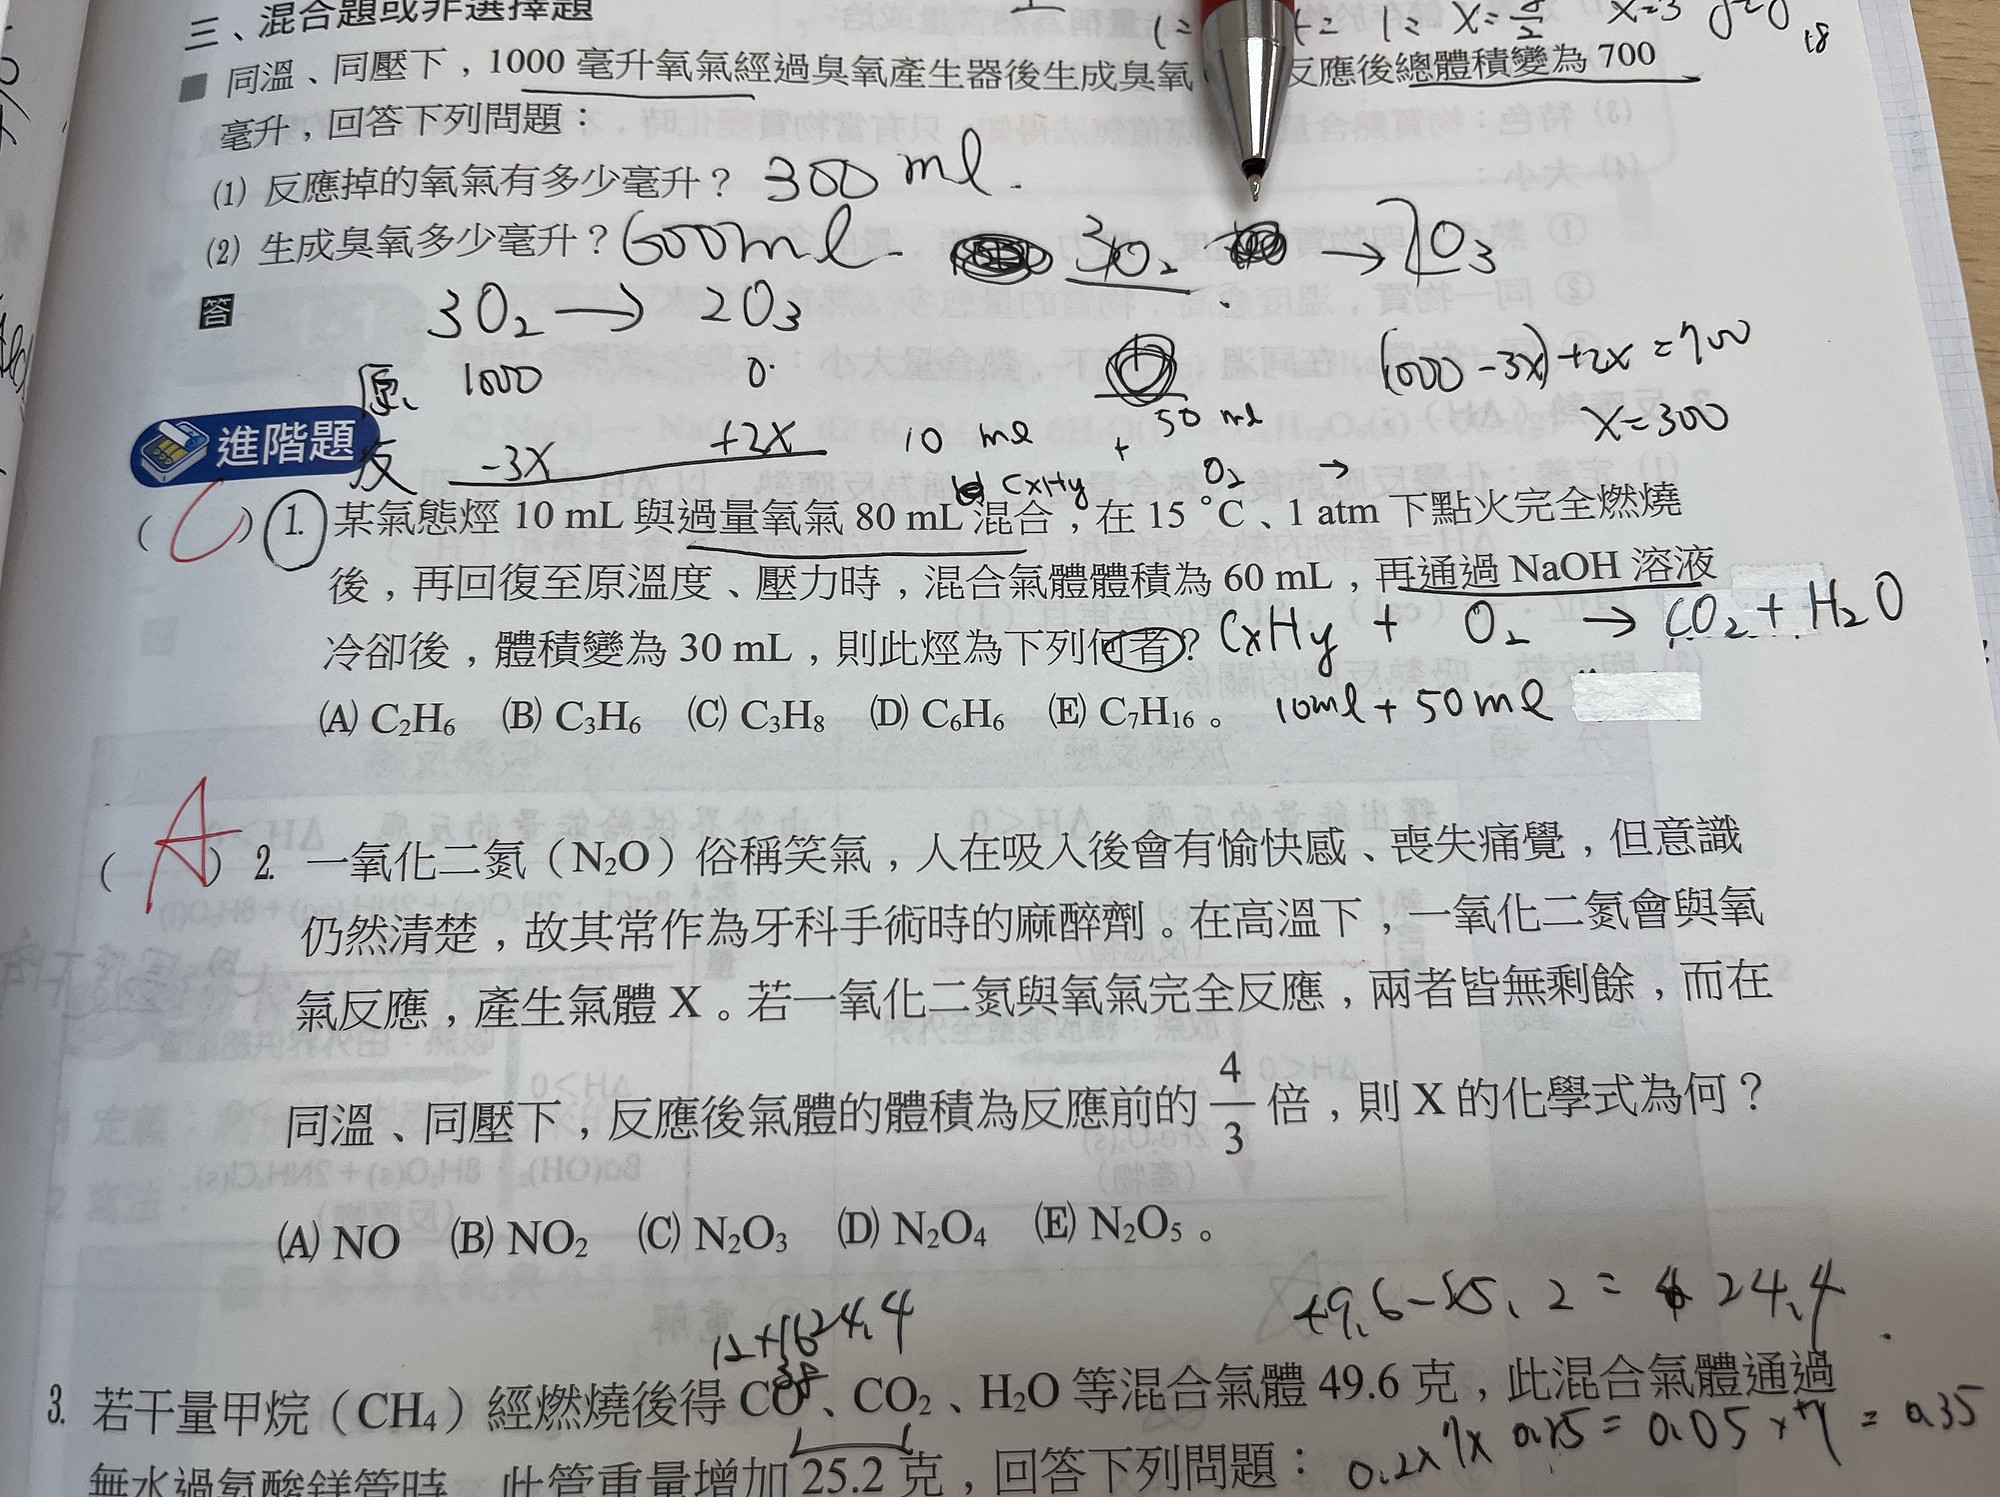 三、混合題或非選擇題
1= += 1= X= 8/2 X=3 y=8
18
同溫、同壓下，1000 毫升氧氣經過臭氧產生器後生成臭氧 反應後總體積變為 700
毫升，回答下列問題：
(1) 反應掉的氧氣有多少毫升？ 300 ml.
(2) 生成臭氧多少毫升？ 600ml. 3O2 → 2O3
答 3O2 → 2O3
原 1000 0. (1000-3X)+2X=700
反 -3X +2X 10 ml + 50 ml X=300
進階題
CxHy O2 →
( C ) 1. 某氣態烴 10 mL 與過量氧氣 80 mL 混合，在 15 °C、1 atm 下點火完全燃燒
後，再回復至原溫度、壓力時，混合氣體體積為 60 mL，再通過 NaOH 溶液
冷卻後，體積變為 30 mL，則此烴為下列何者？ CxHy + O2 → CO2 + H2O
(A) C2H6 (B) C3H6 (C) C3H8 (D) C6H6 (E) C7H16。 10ml + 50ml
( A ) 2. 一氧化二氮（N2O）俗稱笑氣，人在吸入後會有愉快感、喪失痛覺，但意識
仍然清楚，故其常作為牙科手術時的麻醉劑。在高溫下，一氧化二氮會與氧
氣反應，產生氣體 X。若一氧化二氮與氧氣完全反應，兩者皆無剩餘，而在
同溫、同壓下，反應後氣體的體積為反應前的 4/3 倍，則 X 的化學式為何？
(A) NO (B) NO2 (C) N2O3 (D) N2O4 (E) N2O5。
12+16 24.4 49.6-25.2= 24.4
3. 若干量甲烷（CH4）經燃燒後得 CO、CO2、H2O 等混合氣體 49.6 克，此混合氣體通過
無水過氯酸鎂管時，此管重量增加 25.2 克，回答下列問題： 0.2x = 0.05 x 7 = 0.35